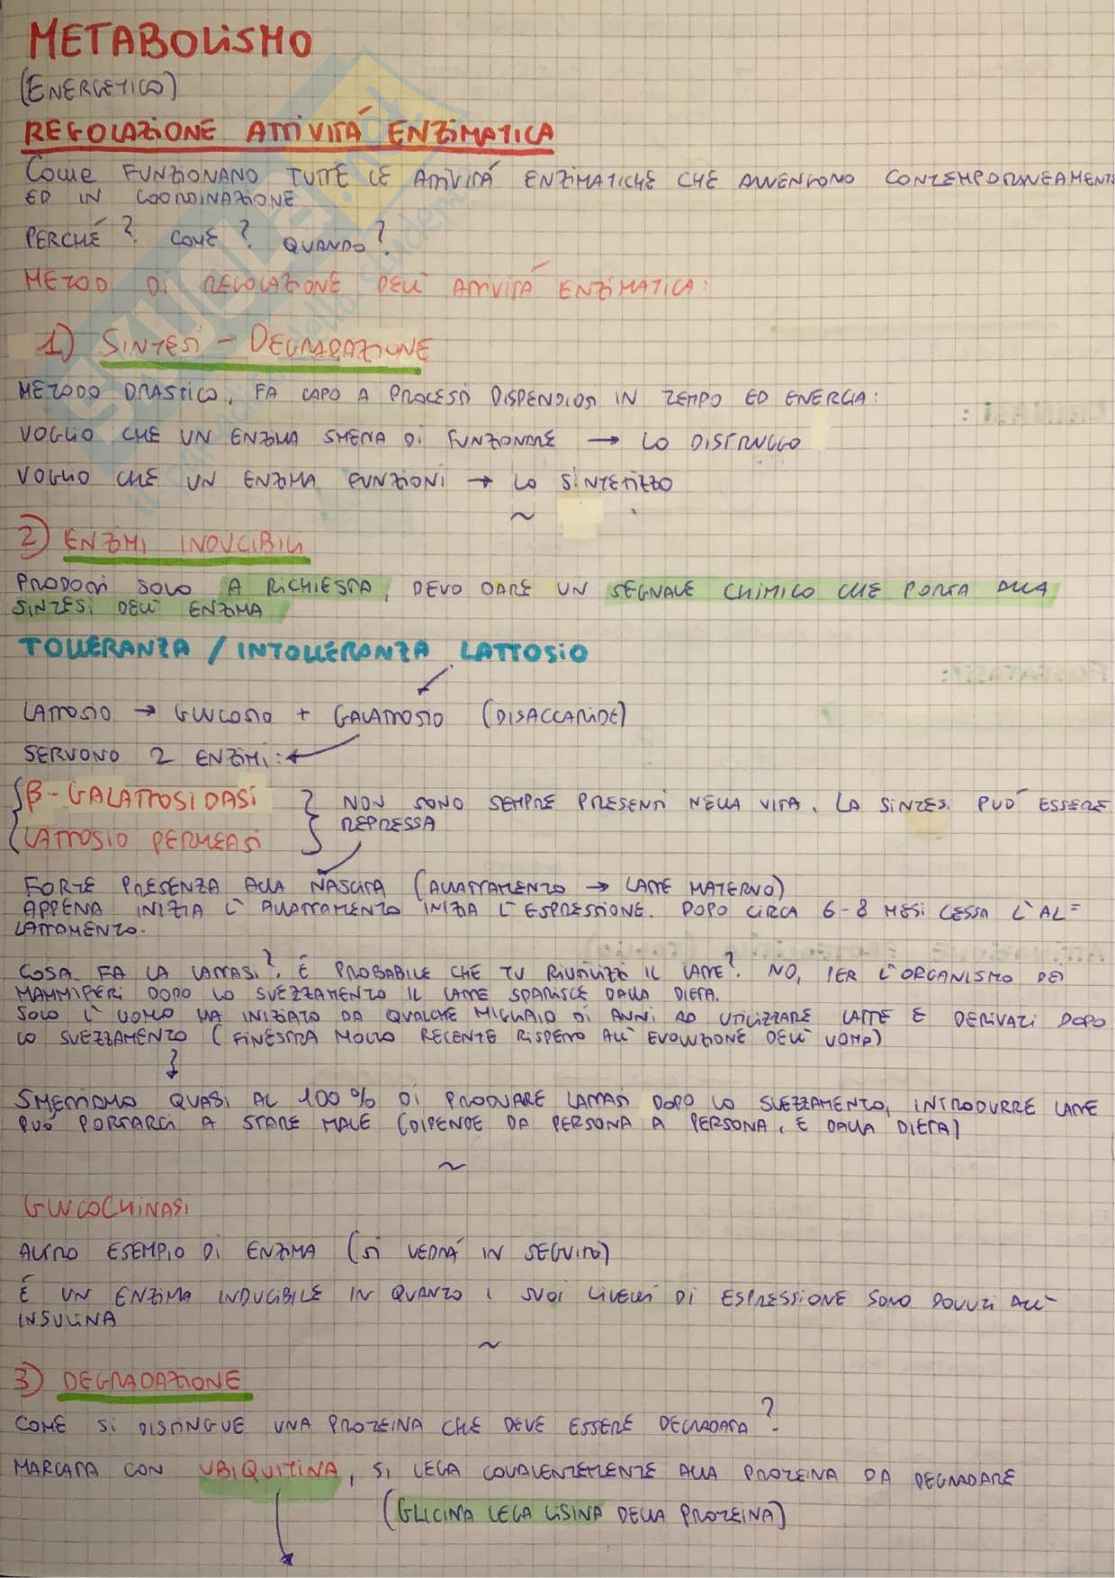 METABOLISMO
(ENERGETICO)
REGOLAZIONE ATTIVITÁ ENZIMATICA
COME FUNZIONANO TUTTE LE ATTIVITÁ ENZIMATICHE CHE AVVENGONO CONTEMPORANEAMENTE
ED IN COORDINAZIONE
PERCHÉ? COME? QUANDO?
METODI DI REGOLAZIONE DELL'ATTIVITÁ ENZIMATICA:
1) SINTESI - DEGRADAZIONE
METODO DRASTICO, FA CAPO A PROCESSI DISPENDIOSI IN TEMPO ED ENERGIA:
VOGLIO CHE UN ENZIMA SMETTA DI FUNZIONARE → LO DISTRUGGO
VOGLIO CHE UN ENZIMA FUNZIONI → LO SINTETIZZO
~
2) ENZIMI INDUCIBILI
PRODOTTI SOLO A RICHIESTA, DEVO DARE UN SEGNALE CHIMICO CHE PORTA ALLA
SINTESI DELL'ENZIMA
TOLLERANZA / INTOLLERANZA LATTOSIO
LATTOSIO → GLUCOSIO + GALATTOSIO (DISACCARIDE)
SERVONO 2 ENZIMI:
β-GALATTOSIDASI
LATTOSIO PERMEASI
NON SONO SEMPRE PRESENTI NELLA VITA. LA SINTESI PUÓ ESSERE
REPRESSA
FORTE PRESENZA ALLA NASCITA (ALLATTAMENTO → LATTE MATERNO)
APPENA INIZIA L'ALLATTAMENTO INIZIA L'ESPRESSIONE. DOPO CIRCA 6-8 MESI CESSA L'AL=
LATTAMENTO.
COSA FA LA LATTASI? É PROBABILE CHE TU RIUTILIZZI IL LATTE? NO, PER L'ORGANISMO DEI
MAMMIFERI DOPO LO SVEZZAMENTO IL LATTE SPARISCE DALLA DIETA.
SOLO L'UOMO HA INIZIATO DA QUALCHE MIGLIAIO DI ANNI AD UTILIZZARE LATTE E DERIVATI DOPO
LO SVEZZAMENTO (FINESTRA MOLTO RECENTE RISPETTO ALL'EVOLUZIONE DELL'UOMO)
SMETTIAMO QUASI AL 100% DI PRODURRE LATTASI DOPO LO SVEZZAMENTO, INTRODURRE LATTE
PUÓ PORTARCI A STARE MALE (DIPENDE DA PERSONA A PERSONA, E DALLA DIETA)
~
GLUCOCHINASI
ALTRO ESEMPIO DI ENZIMA (SI VEDRÁ IN SEGUITO)
É UN ENZIMA INDUCIBILE IN QUANTO I SUOI LIVELLI DI ESPRESSIONE SONO DOVUTI ALL'
INSULINA
~
3) DEGRADAZIONE
COME SI DISTINGUE UNA PROTEINA CHE DEVE ESSERE DEGRADATA?
MARCATA CON UBIQUITINA, SI LEGA COVALENTEMENTE ALLA PROTEINA DA DEGRADARE
(GLICINA LEGA LISINA DELLA PROTEINA)